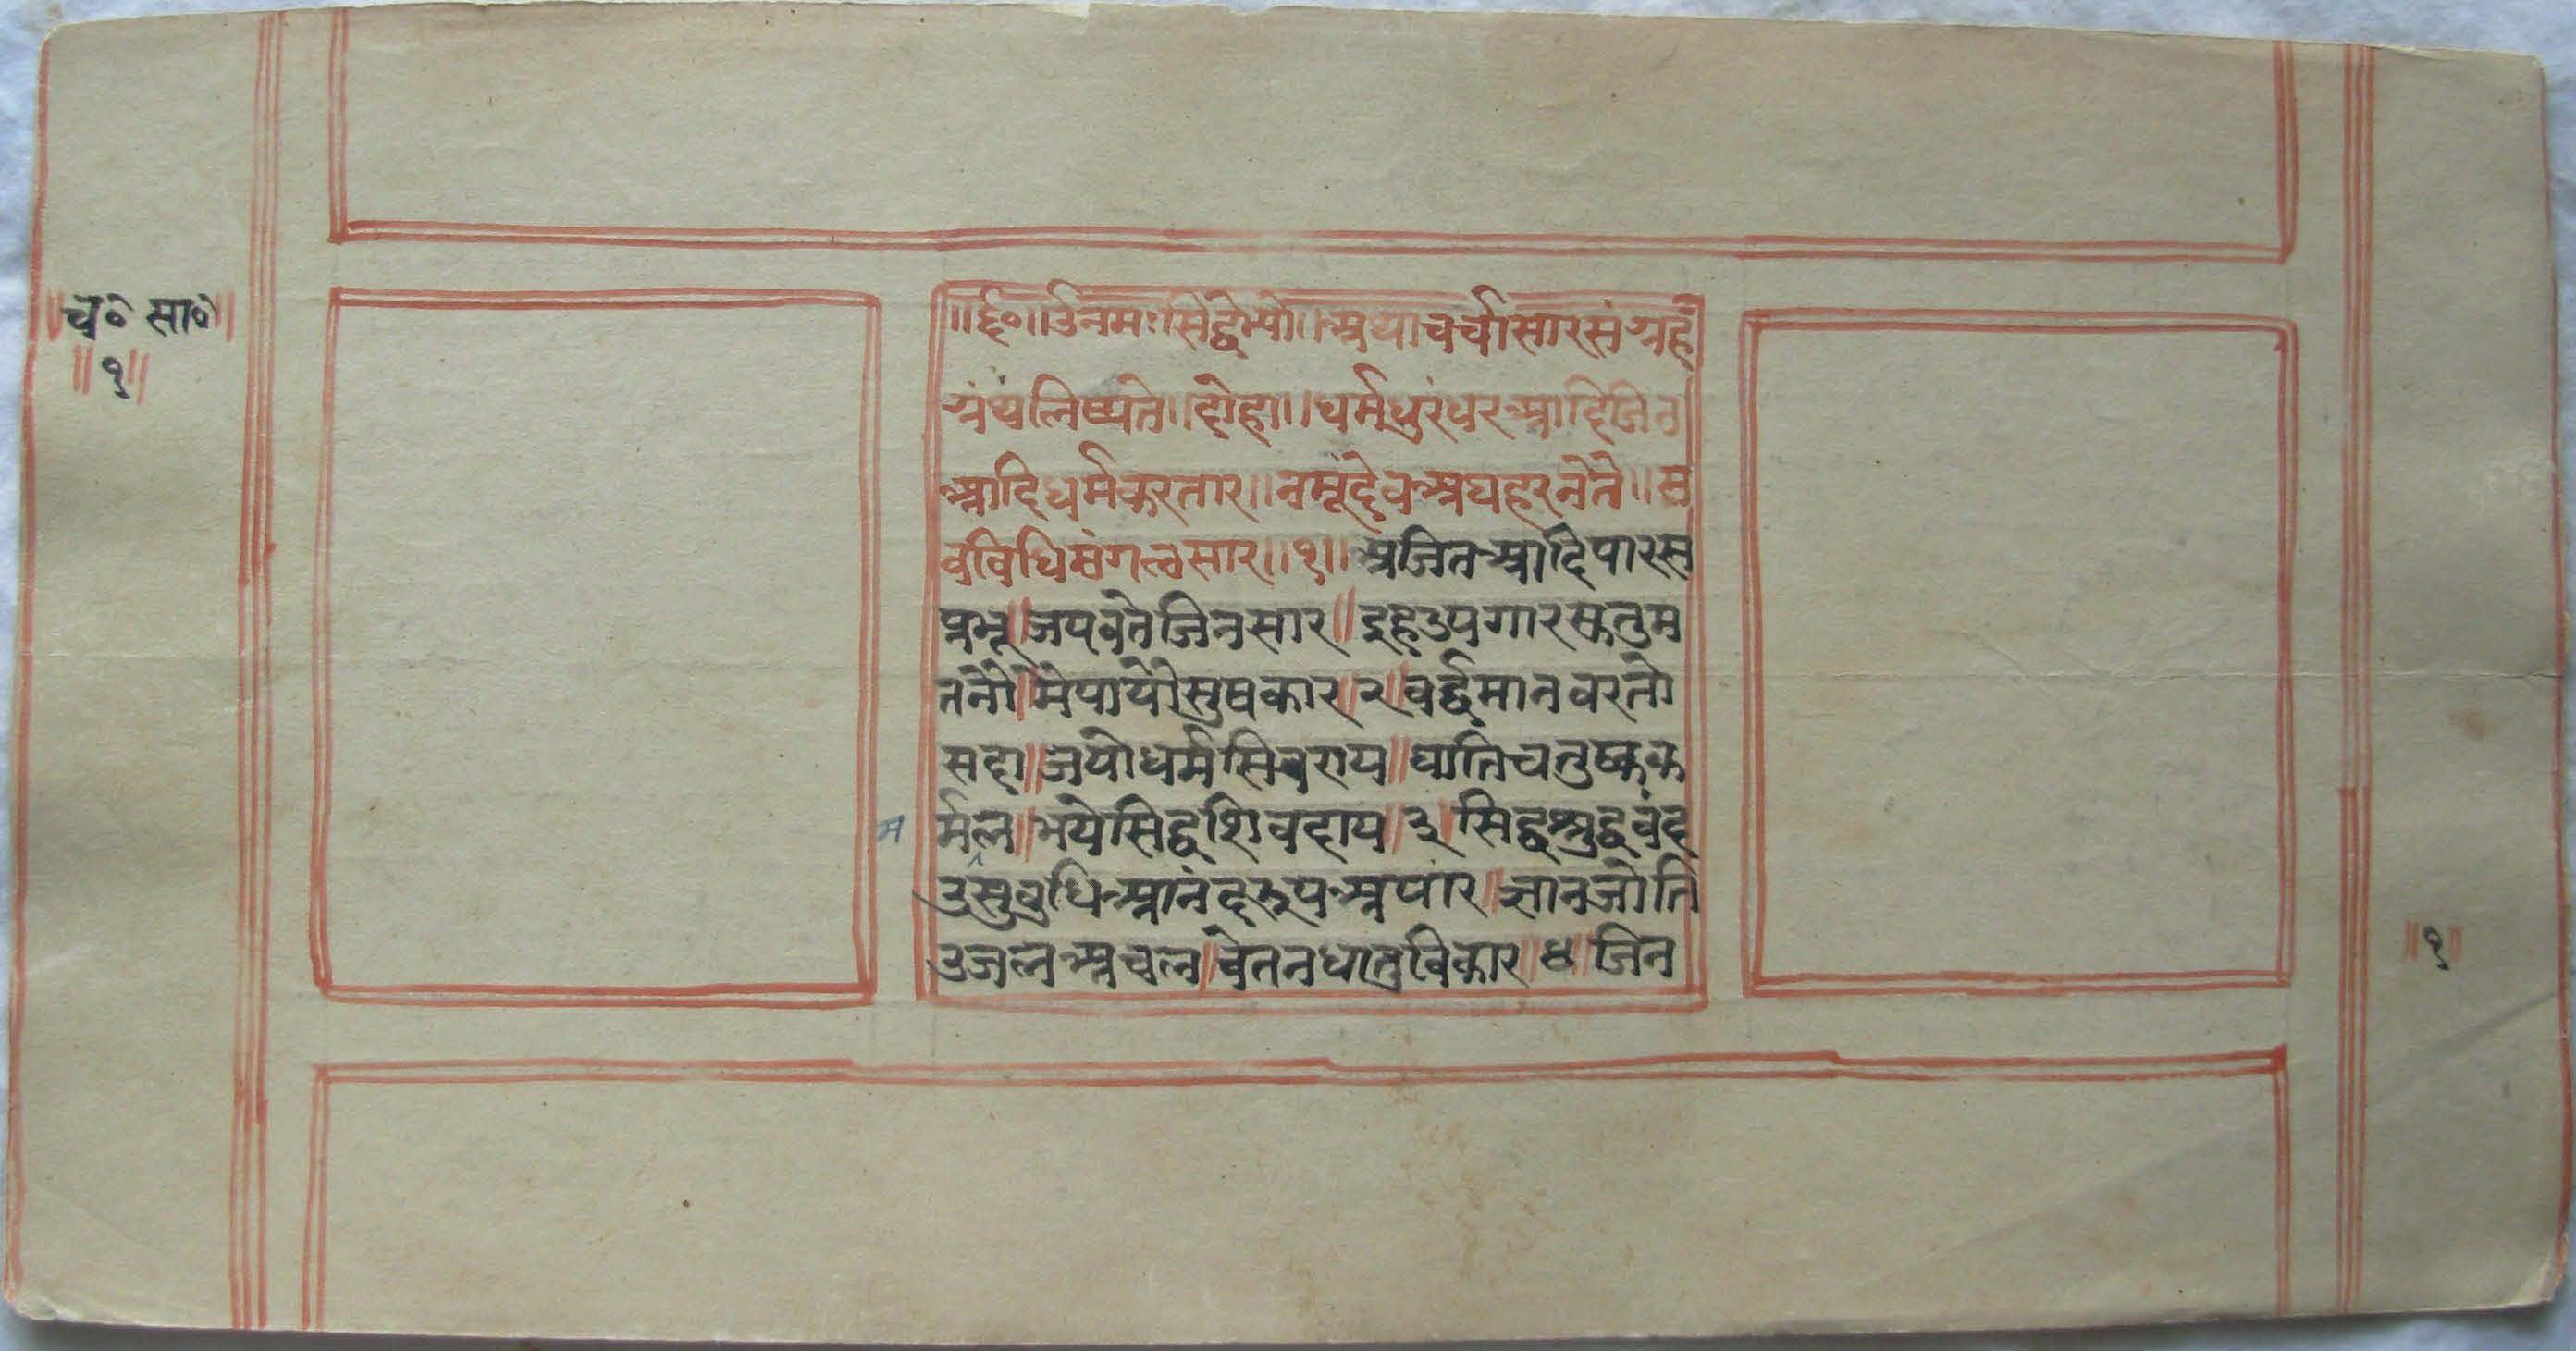 च॰ सा॰
॥१॥
॥ई॰॥ उँनमः सिद्धेभ्यो॥ अथा चर्चासारसंग्रह
ग्रंथ लिष्यते॥ दोहा॥ धर्मधुरंधर आदि जिन
आदि धर्म करतार॥ नमूं देव अघहरनेते॥ स
बविधि मंगलसार॥१॥ अजित आदि पारस
प्रभू॥ जयवंते जिनसार॥ इह उपगारस्क तुम
तनो॥ मे पायो सुषकार॥२॥ वर्द्धमान वरतो
सदा॥ जयो धर्म सिवराय॥ घाति चतुष्क क
र्मल॥ भये सिद्ध शिवदाय॥३॥ सिद्ध श्रुद्ध वंद
म
उ सुवुधि आनंद रूप अपार॥ ज्ञान जोति
उजल अचल॥ चेतन धातु विकार॥४॥ जिन
॥१॥